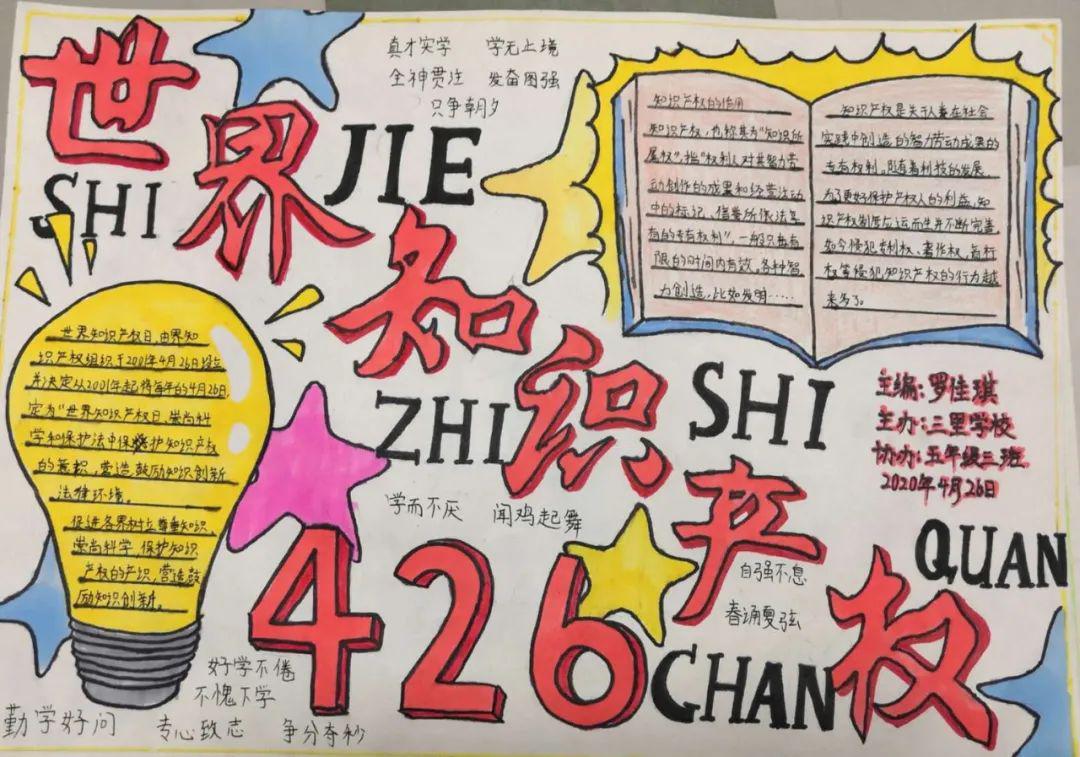 世界知识产权
SHI JIE ZHI SHI CHAN QUAN
426
真才实学 学无止境
全神贯注 发奋图强
只争朝夕
知识产权的作用
知识产权，也称其为“知识所
属权”，指“权利人对其智力劳
动创作的成果和经营活动
中的标记、信誉所依法享
有的专有权利”，一般只在有
限的时间内有效。各种智
力创造，比如发明……
知识产权是关于人类在社会
实践中创造的智力劳动成果的
专有权利。随着科技的发展，
为了更好保护产权人的利益，知
识产权制度应运而生并不断完善
如今侵犯专利权、著作权、商标
权等侵犯知识产权的行为越
来多了。
世界知识产权日，由界知
识产权组织于2001年4月26日设立
并决定从2001年起将每年的4月26日，
定为“世界知识产权日，崇尚科
学和保护法中保护知识产权
的意识，营造鼓励知识创新
法律环境。
促进各界树立尊重知识
崇尚科学，保护知识
产权的产识，营造鼓
励知识创新。
主编：罗佳琪
主办：三里学校
协办：五年级三班
2020年4月26日
学而不厌 闻鸡起舞
自强不息
春诵夏弦
好学不倦
不愧下学
勤学好问 专心致志 争分夺秒